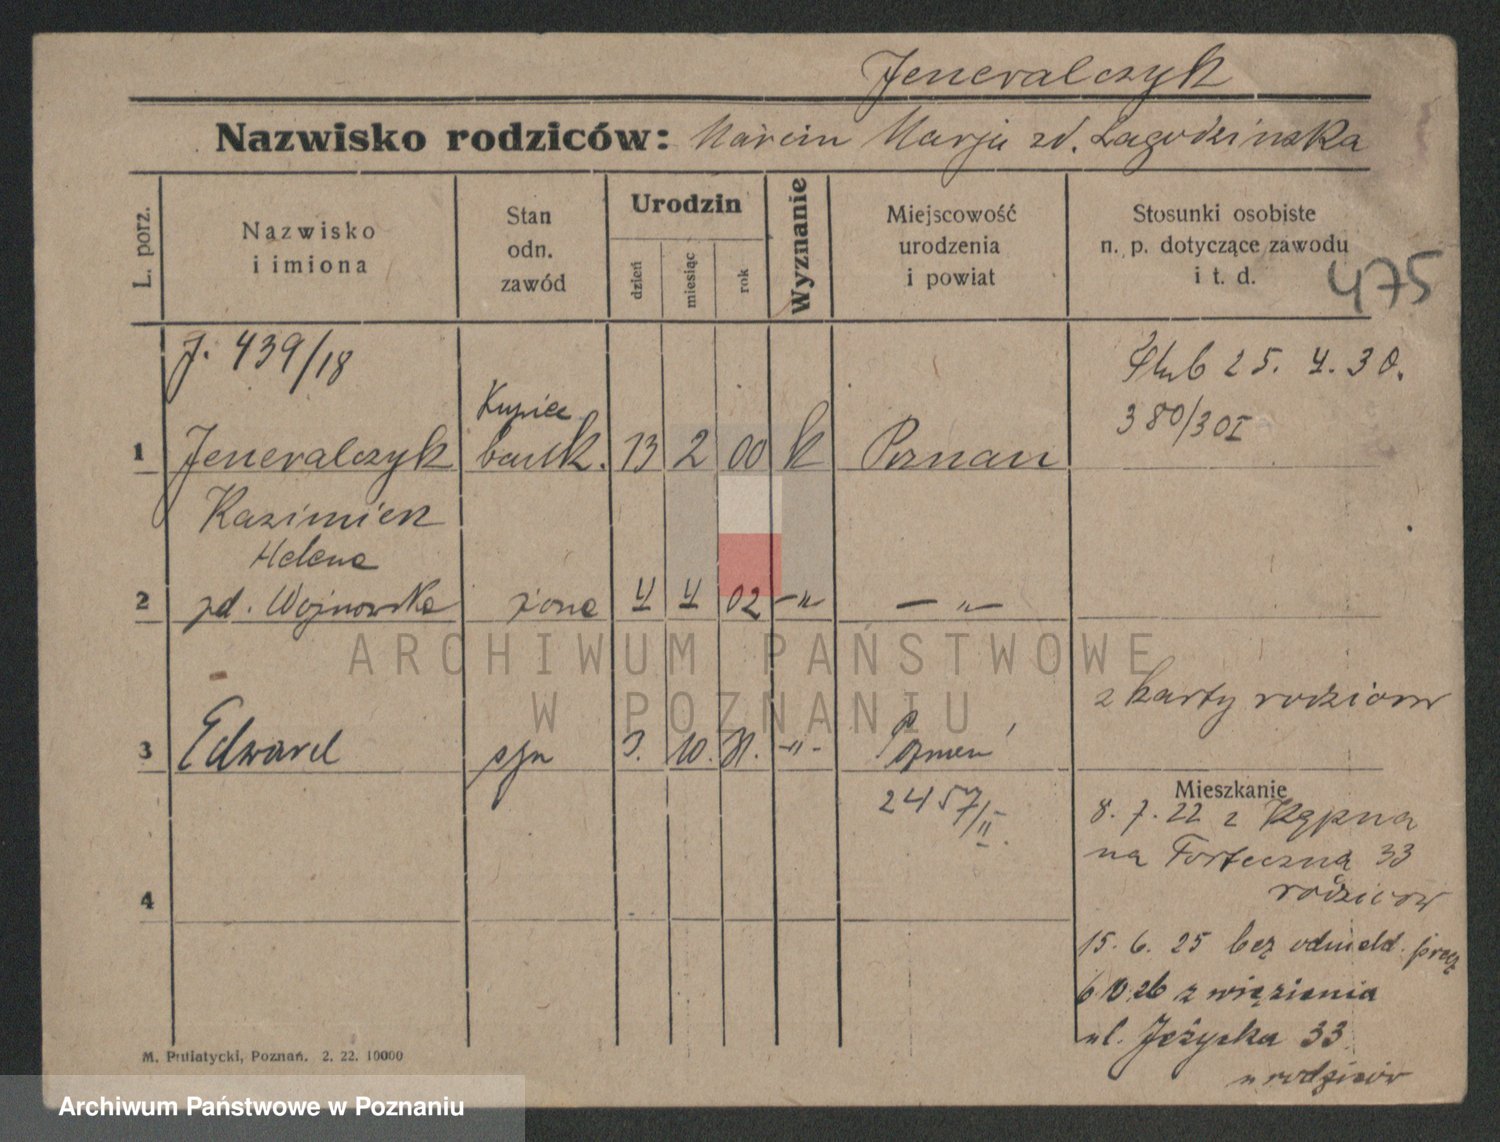 Jeneralczyk
Nazwisko rodziców: Marcin Marja zd. Łagodzinska
L. porz.
Nazwisko
i imiona
Stan
odn.
zawód
Urodzin
dzień
miesiąc
rok
Wyznanie
Miejscowość
urodzenia
i powiat
Stosunki osobiste
n. p. dotyczące zawodu
i t. d.
475
J. 439/18
Ślub 25. 4. 30.
380/30I
Kupiec
1 Jeneralczyk bank. 13 2 00 k Poznan
Kazimierz
Helena
2 zd. Wojnowska żona 4 4 02 —"— — " —
z karty rodziców
3 Edward syn 3. 10. 31. —"— Poznań
2457/II.
Mieszkanie
8. 7. 22 z Kępna
na Forteczna 33
rodziców
4
15. 6. 25 bez odmeld.
6 10 26 z więzienia
ul. Jeżycka 33
u rodziców
M. Putiatycki, Poznań. 2. 22. 10000
ARCHIWUM PAŃSTWOWE
W POZNANIU
Archiwum Państwowe w Poznaniu